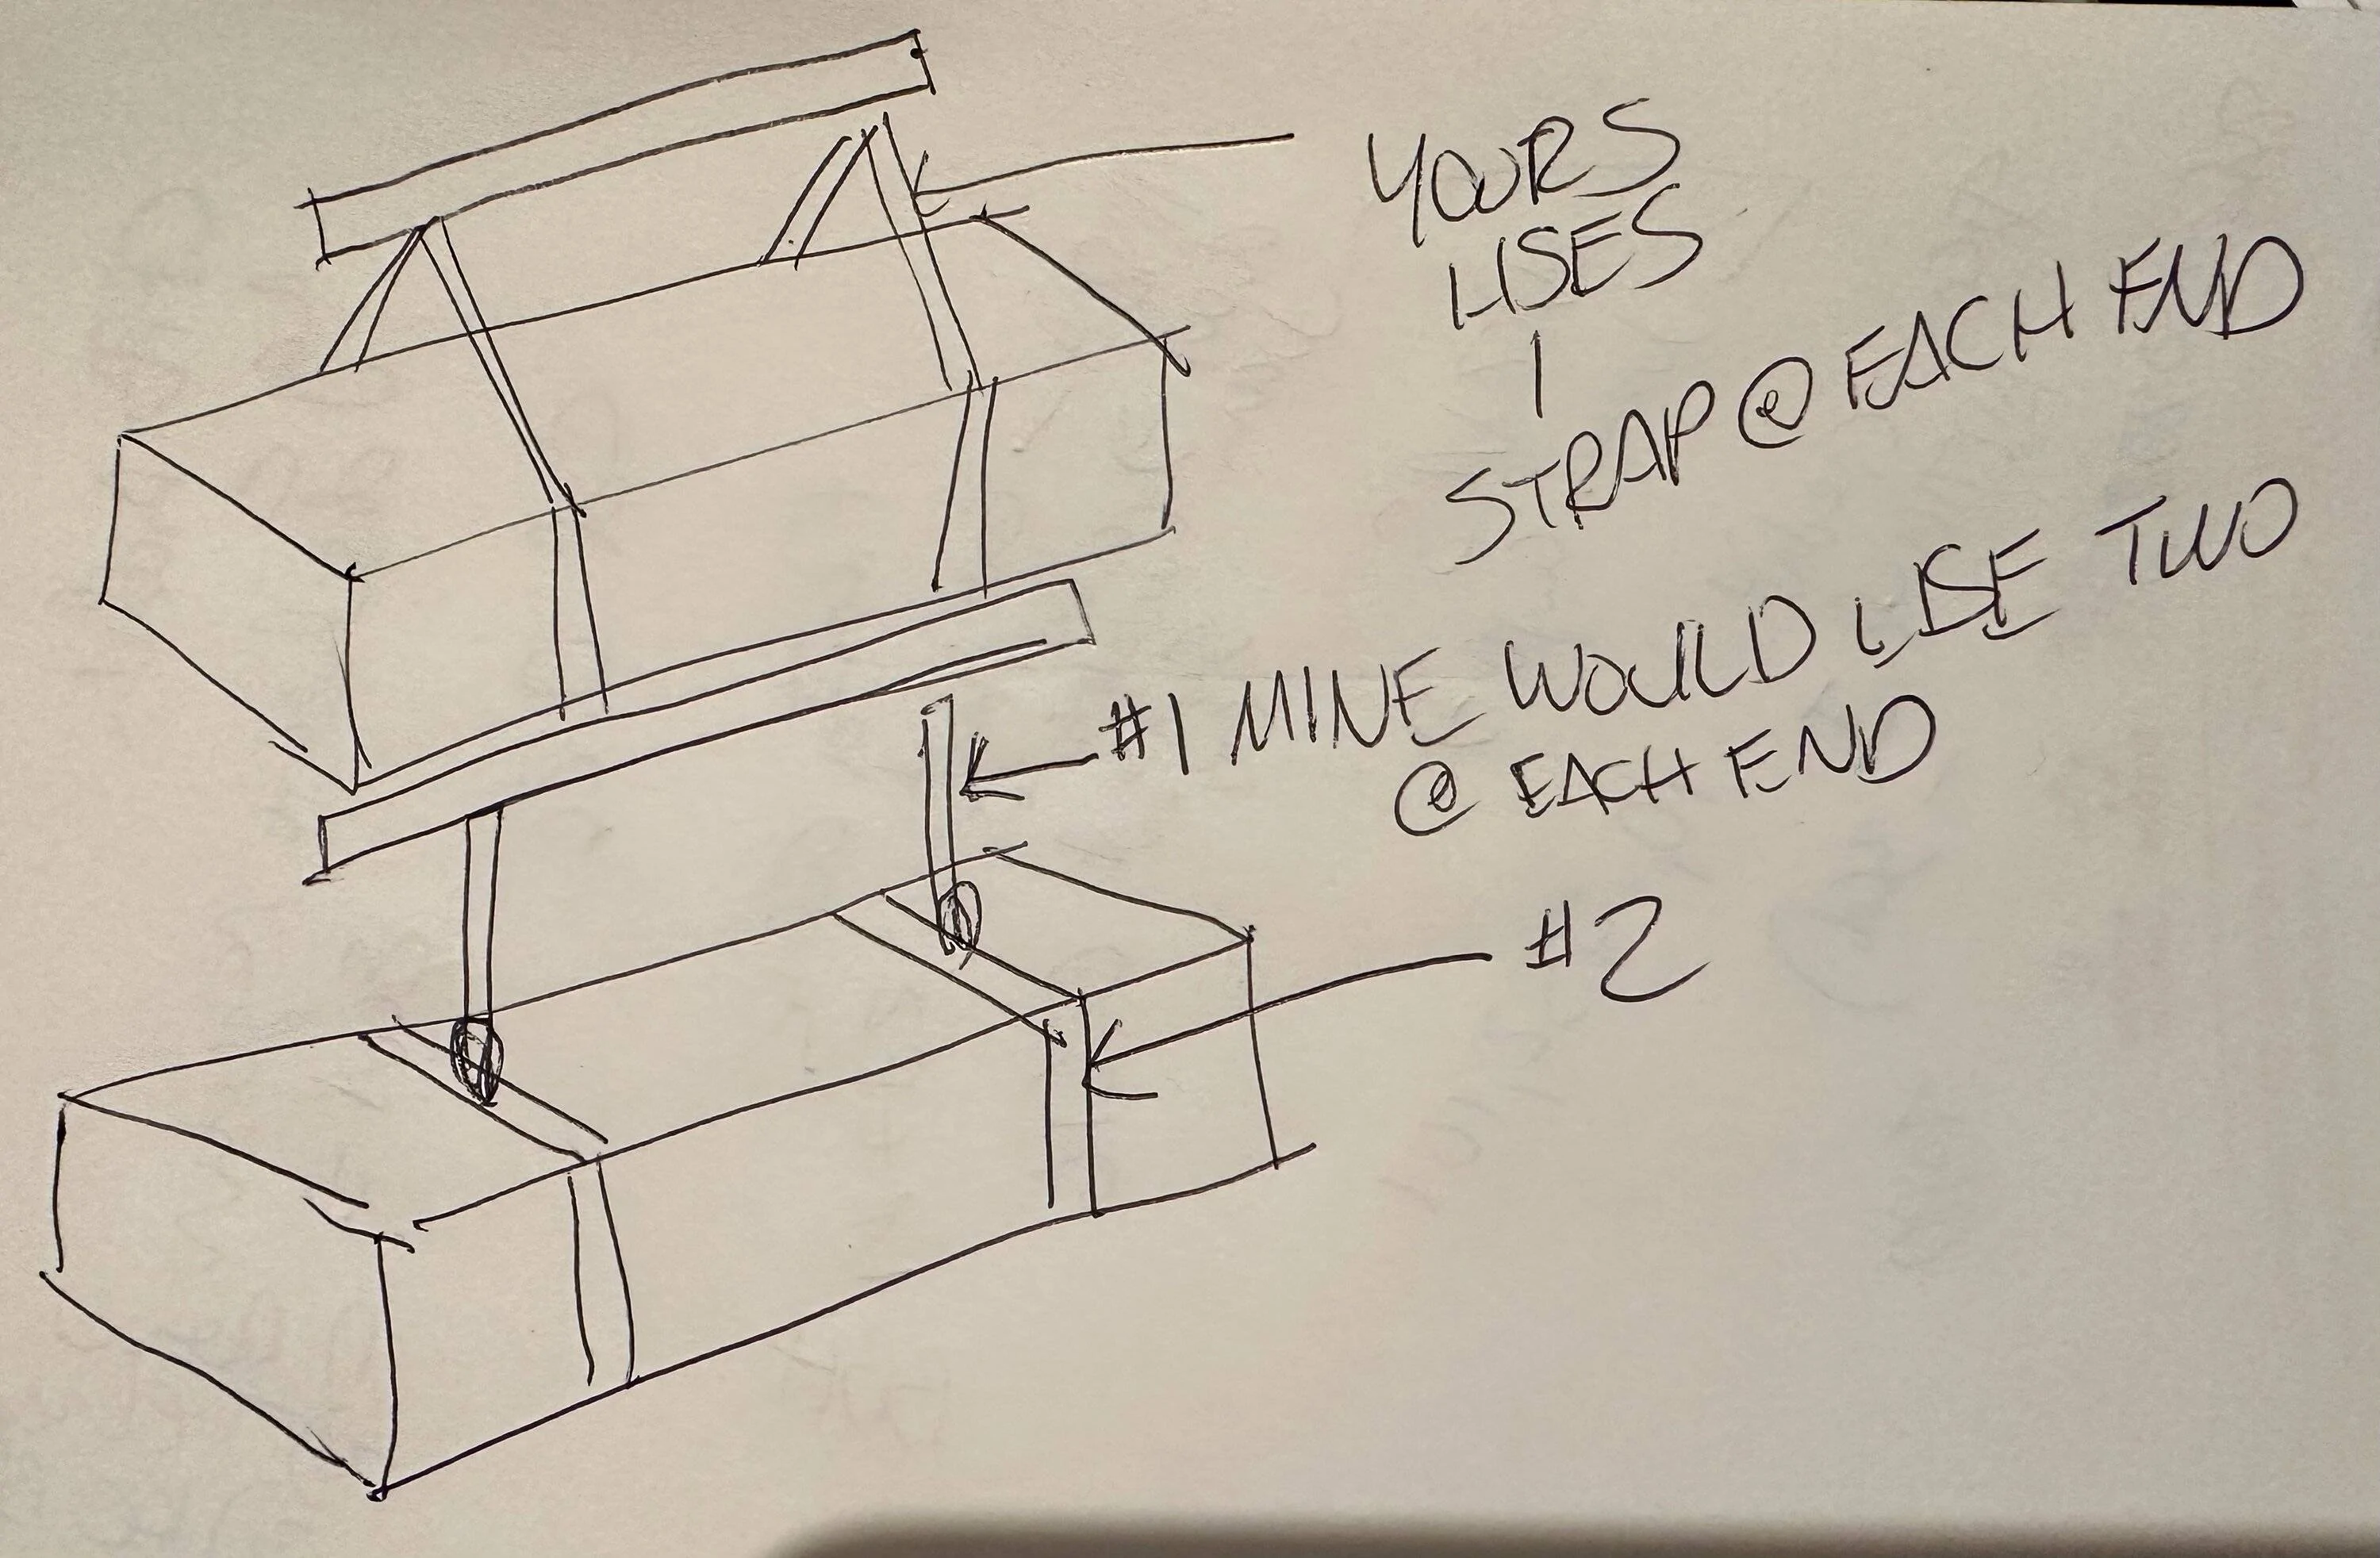 YOURS
USES
1
STRAP @ EACH END
#1 MINE WOULD USE TWO
@ EACH END
#2